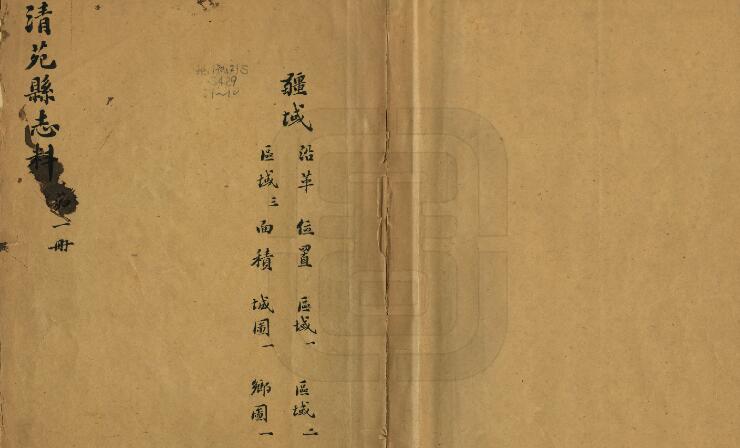 疆域
沿革 位置 區域一 區域二
區域三 面積 城圖一 鄉圖一
清苑縣志料 第一冊